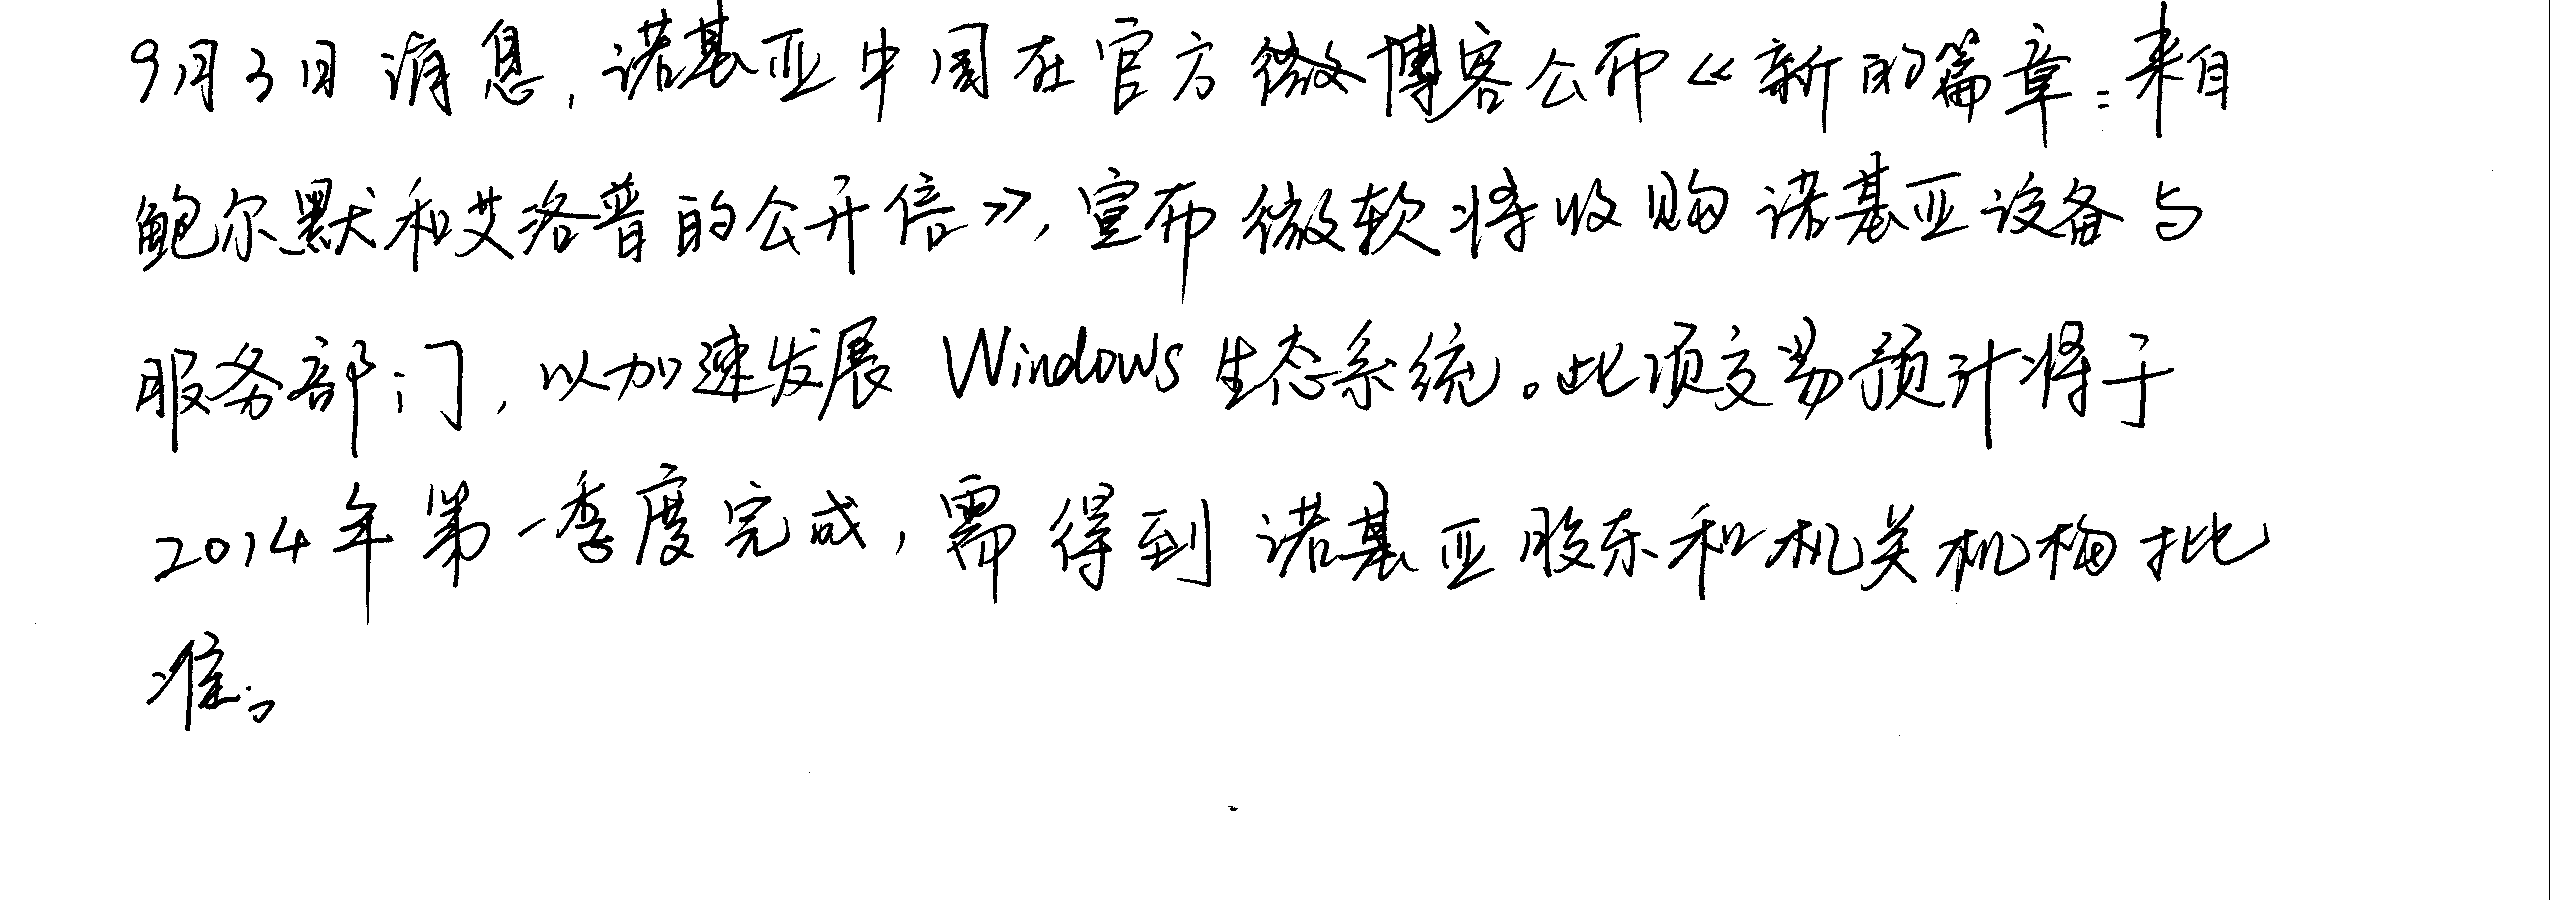 9月3日消息,诺基亚中国在官方微博客公布《新的篇章:来自
鲍尔默和艾洛普的公开信》,宣布微软将收购诺基亚设备与
服务部门,以加速发展Windows生态系统。此项交易预计将于
2014年第一季度完成,需得到诺基亚股东和机关机构批
准。